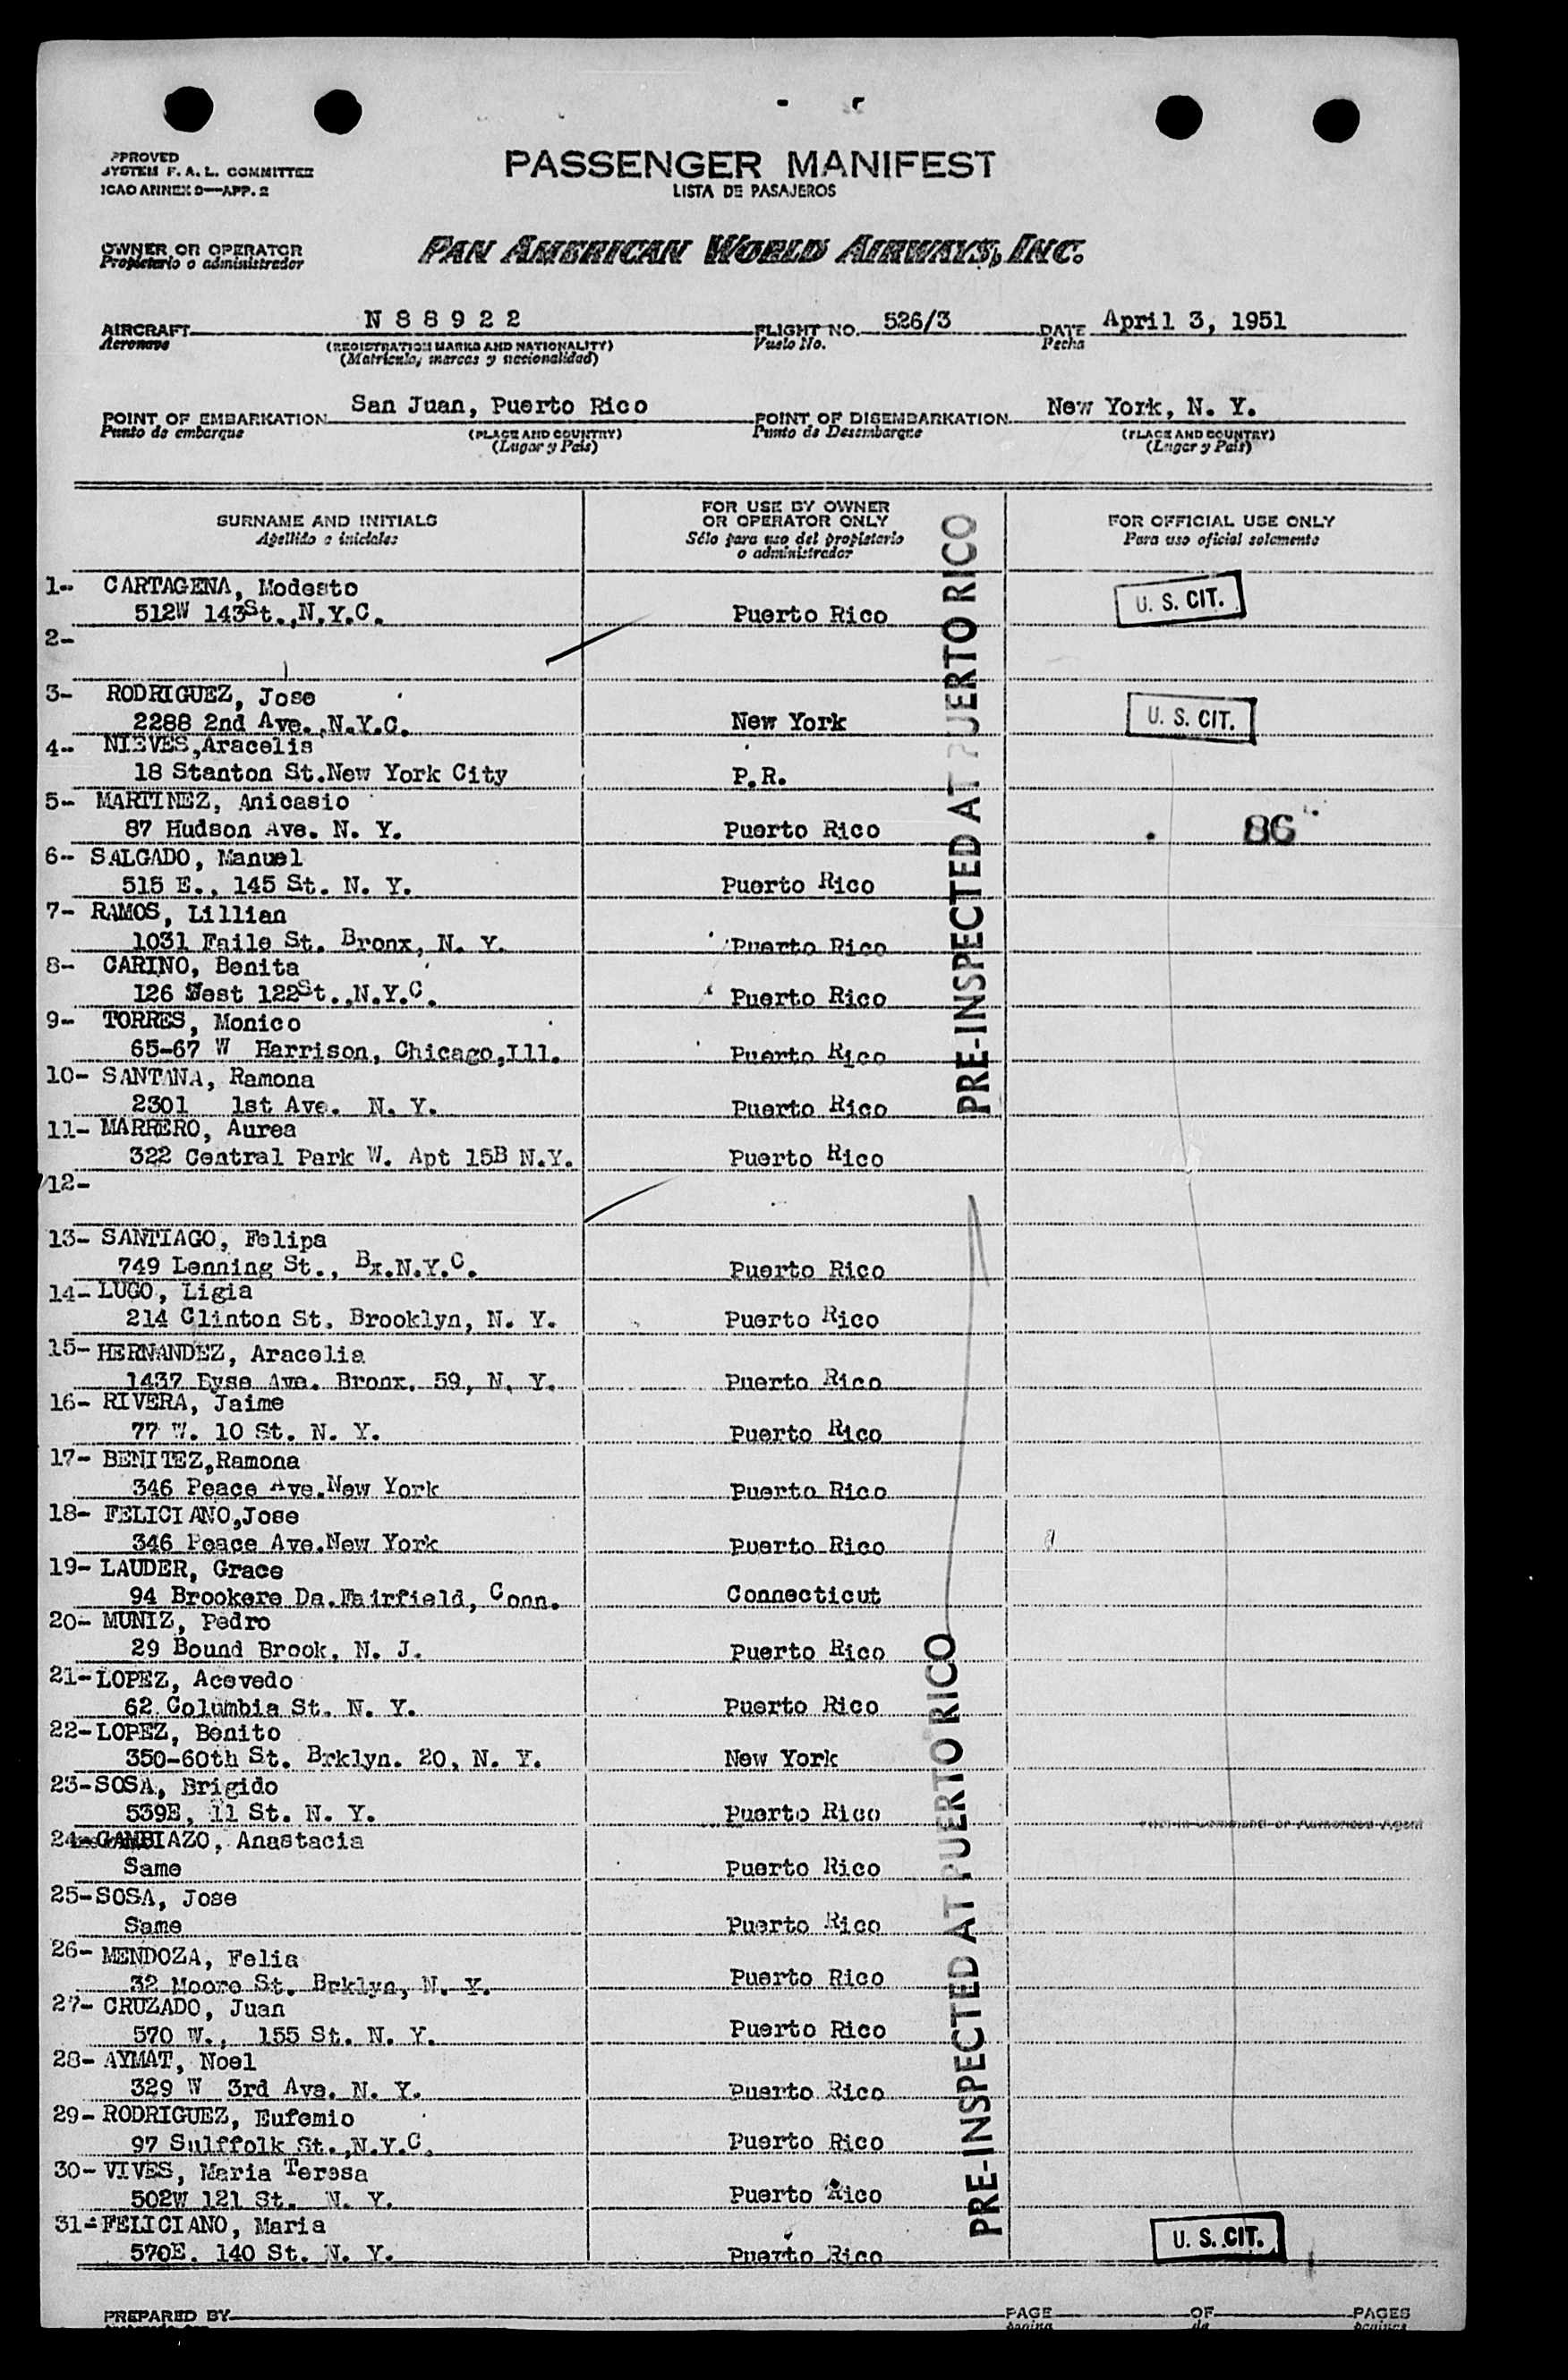 PPROVED
SYSTEM F. A. L. COMMITTEE
ICAO ANNEX 9—APP. 2
PASSENGER MANIFEST
LISTA DE PASAJEROS
OWNER OR OPERATOR
Propietario o administrador
PAN AMERICAN WORLD AIRWAYS, INC.
AIRCRAFT N 8 8 9 2 2 FLIGHT NO. 526/3 DATE April 3, 1951
Aeronave (REGISTRATION MARKS AND NATIONALITY) Vuelo No. Fecha
(Matrícula, marcas y nacionalidad)
POINT OF EMBARKATION San Juan, Puerto Rico POINT OF DISEMBARKATION New York, N. Y.
Punto de embarque (PLACE AND COUNTRY) Punto de Desembarque (PLACE AND COUNTRY)
(Lugar y País) (Lugar y País)
SURNAME AND INITIALS
Apellido e iniciales
FOR USE BY OWNER
OR OPERATOR ONLY
Sólo para uso del propietario
o administrador
FOR OFFICIAL USE ONLY
Para uso oficial solamente
PRE-INSPECTED AT PUERTO RICO
1- CARTAGENA, Modesto
512W 143St.,N.Y.C. Puerto Rico U. S. CIT.
2-
3- RODRIGUEZ, Jose
2288 2nd Ave.,N.Y.C. New York U. S. CIT.
4- NIEVES,Aracelis
18 Stanton St.New York City P.R.
5- MARTINEZ, Anicasio
87 Hudson Ave. N. Y. Puerto Rico 86
6- SALGADO, Manuel
515 E., 145 St. N. Y. Puerto Rico
7- RAMOS, Lillian
1031 Faile St. Bronx, N. Y. Puerto Rico
8- CARINO, Benita
126 West 122St.,N.Y.C. Puerto Rico
9- TORRES, Monico
65-67 W Harrison, Chicago,Ill. Puerto Rico
10- SANTANA, Ramona
2301 1st Ave. N. Y. Puerto Rico
11- MARRERO, Aurea
322 Central Park W. Apt 15B N.Y. Puerto Rico
12-
13- SANTIAGO, Felipa
749 Lenning St., Bx.N.Y.C. Puerto Rico
14- LUGO, Ligia
214 Clinton St. Brooklyn, N. Y. Puerto Rico
15- HERNANDEZ, Aracelia
1437 Eyse Ave. Bronx. 59, N. Y. Puerto Rico
16- RIVERA, Jaime
77 W. 10 St. N. Y. Puerto Rico
17- BENITEZ,Ramona
346 Peace Ave.New York Puerto Rico
18- FELICIANO,Jose
346 Peace Ave.New York Puerto Rico
19- LAUDER, Grace
94 Brookere Da.Fairfield, Conn. Connecticut
20- MUNIZ, Pedro
29 Bound Brook, N. J. Puerto Rico
21- LOPEZ, Acevedo
62 Columbia St. N. Y. Puerto Rico
22- LOPEZ, Benito
350-60th St. Brklyn. 20, N. Y. New York
23- SOSA, Brigido
539E, 11 St. N. Y. Puerto Rico
Command or Authorized Agent
24- GAMBIAZO, Anastacia
Same Puerto Rico
25- SOSA, Jose
Same Puerto Rico
26- MENDOZA, Felia
32 Moore St. Brklyn, N. Y. Puerto Rico
27- CRUZADO, Juan
570 W., 155 St. N. Y. Puerto Rico
28- AYMAT, Noel
329 W 3rd Ave. N. Y. Puerto Rico
29- RODRIGUEZ, Eufemio
97 Sulffolk St.,N.Y.C. Puerto Rico
30- VIVES, Maria Teresa
502W 121 St. N. Y. Puerto Rico
31- FELICIANO, Maria
570E. 140 St. N. Y. Puerto Rico U. S. CIT.
PRE-INSPECTED AT PUERTO RICO
PREPARED BY PAGE OF PAGES